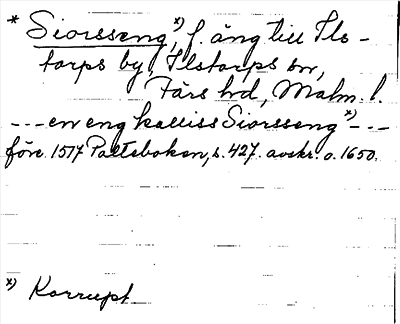 * Siorsseng,*) f. äng till Ils-
torps by, Ilstorps sn,
Färs hd, Malm. l.
---en eng kalliss Siorsseng*)---
före 1517 Palteboken, s. 427. avskr. o. 1650.
*) Korrupt